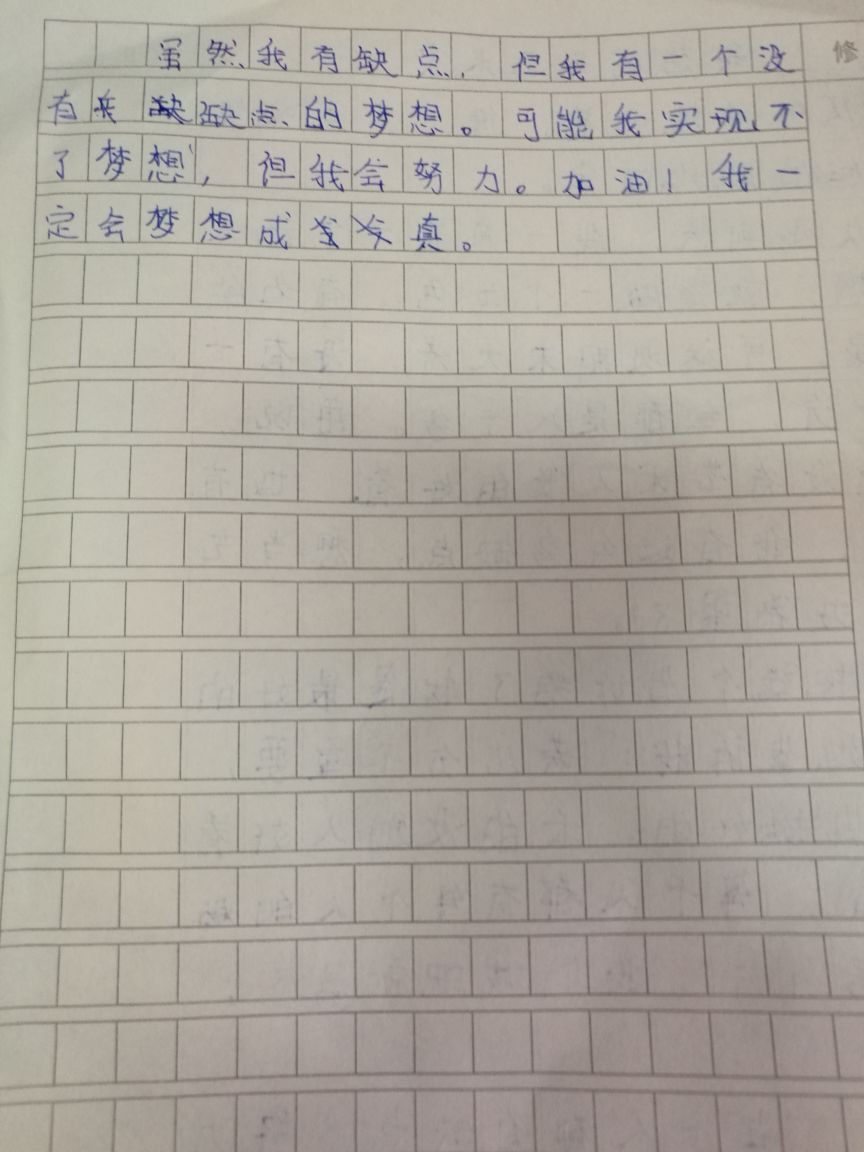 虽然我有缺点，但我有一个没
有缺点的梦想。可能我实现不
了梦想，但我会努力。加油！我一
定会梦想成真。
修